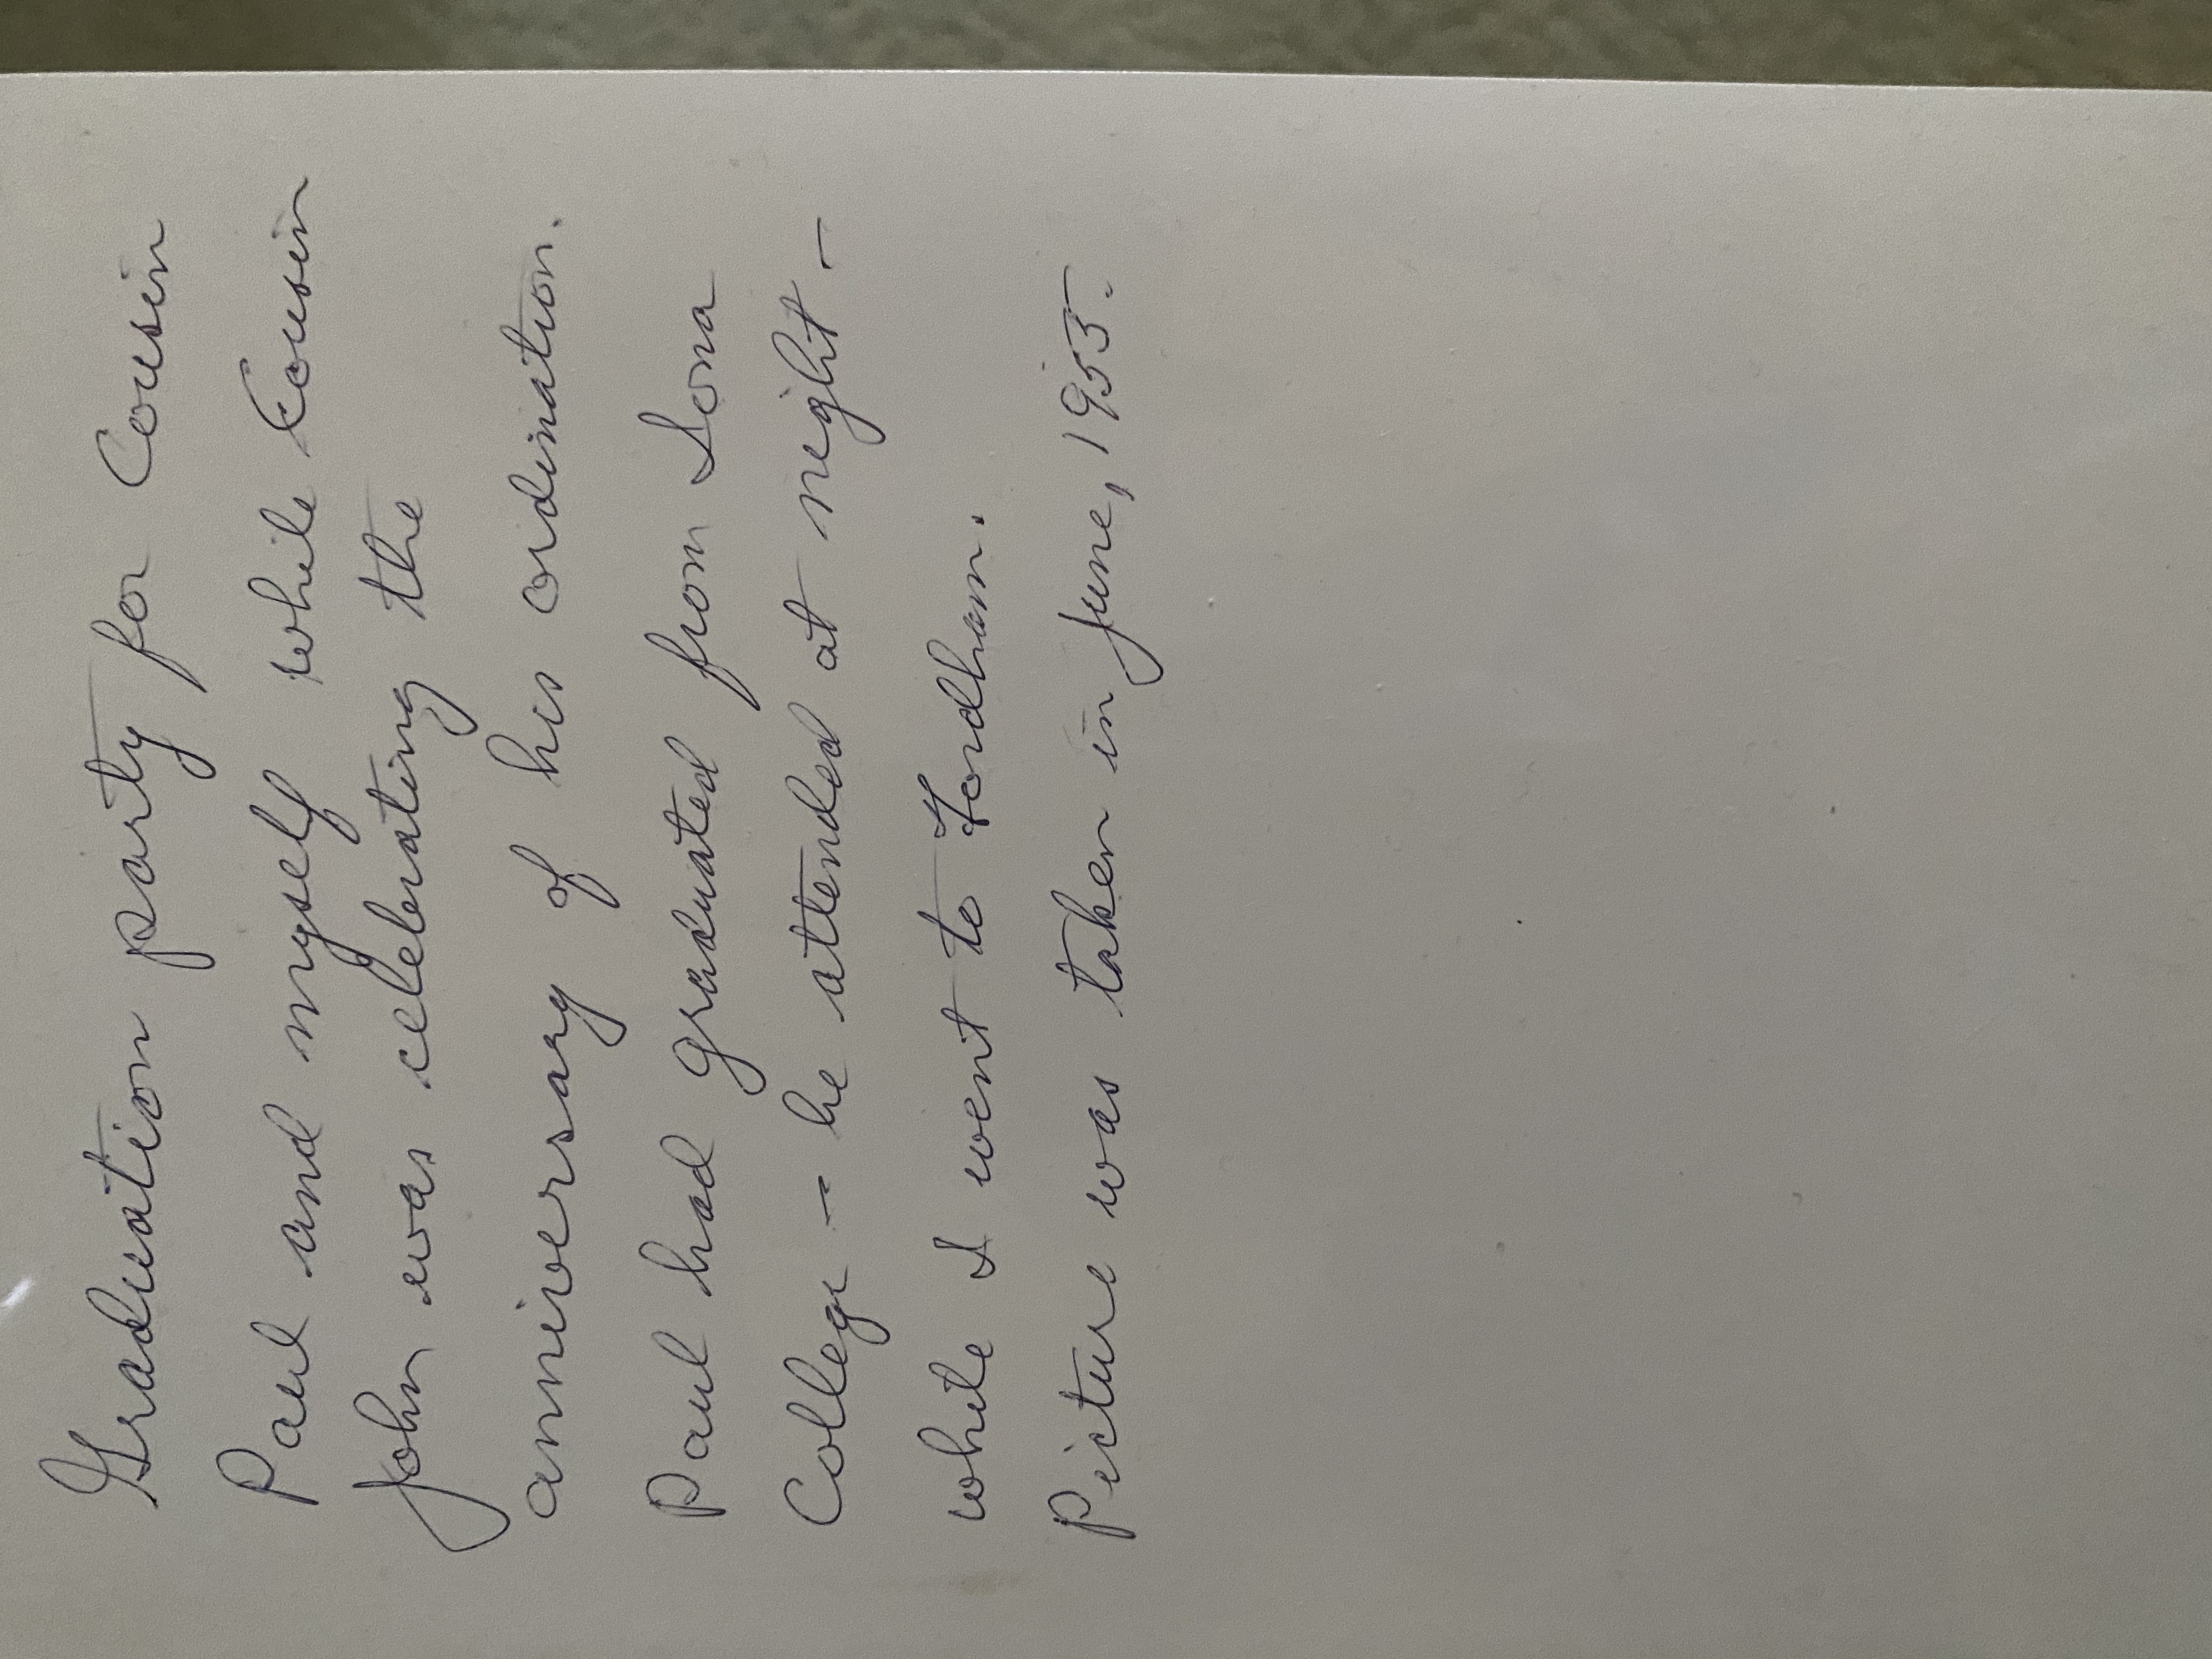 Graduation party for Cousin
Paul and myself while Cousin
John was celebrating the
anniversary of his ordination.
Paul had graduated from Iona
College - he attended at night -
while I went to Fordham.
Picture was taken in June, 1953.